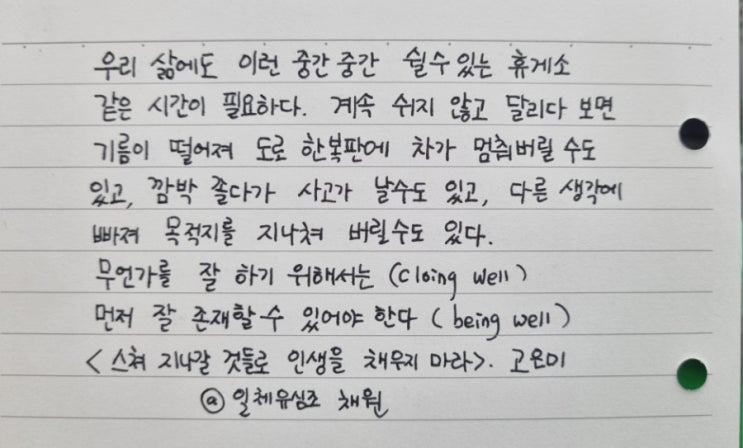 우리 삶에도 이런 중간중간 쉴수있는 휴게소
같은 시간이 필요하다. 계속 쉬지 않고 달리다 보면
기름이 떨어져 도로 한복판에 차가 멈춰버릴 수도
있고, 깜박 졸다가 사고가 날수도 있고, 다른 생각에
빠져 목적지를 지나쳐 버릴수도 있다.
무언가를 잘 하기 위해서는 (cloing well)
먼저 잘 존재할 수 있어야 한다 (being well)
<스쳐 지나갈 것들로 인생을 채우지 마라>. 고은미
@ 일체유심조 채원